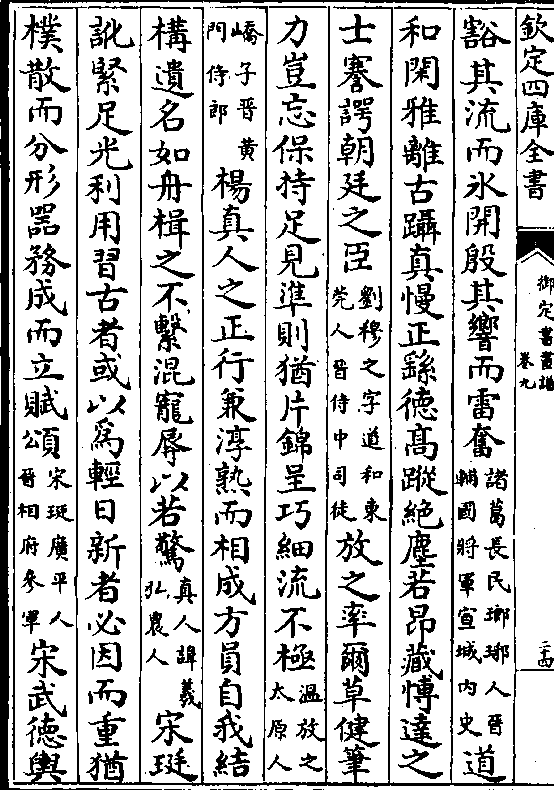 欽定四庫全書
御定書畫譜
卷九
豁其流而氷開殷其響而雷奮諸葛長民瑯琊人晉輔國將軍宣城內史道
和閑雅離古躡真慢正繇德高蹤絶塵若昂藏愽達之
士謇諤朝廷之臣劉穆之字道和東莞人晉侍中司徒放之率爾草健筆
力豈忘保持足見準則猶片錦呈巧細流不極溫放之太原人
嶠子晉黃門侍郎楊真人之正行兼淳熟而相成方員自我結
構遺名如舟楫之不繫混寵辱以若驚真人諱羲弘農人宋珽
訛緊足光利用習古者或以為輕日新者必因而重猶
樸散而分形器務成而立賦頌宋珽廣平人晉相府參軍宋武德輿